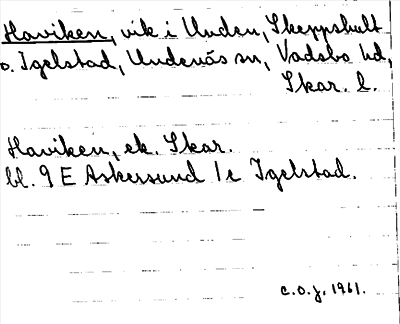 Haviken, vik i Unden, Skeppshult
o. Igelstad, Undenäs sn, Vadsbo hd,
Skar. l.
Haviken, ek. Skar.
bl. 9 E Askersund 1 e Igelstad.
c.o.j. 1961.